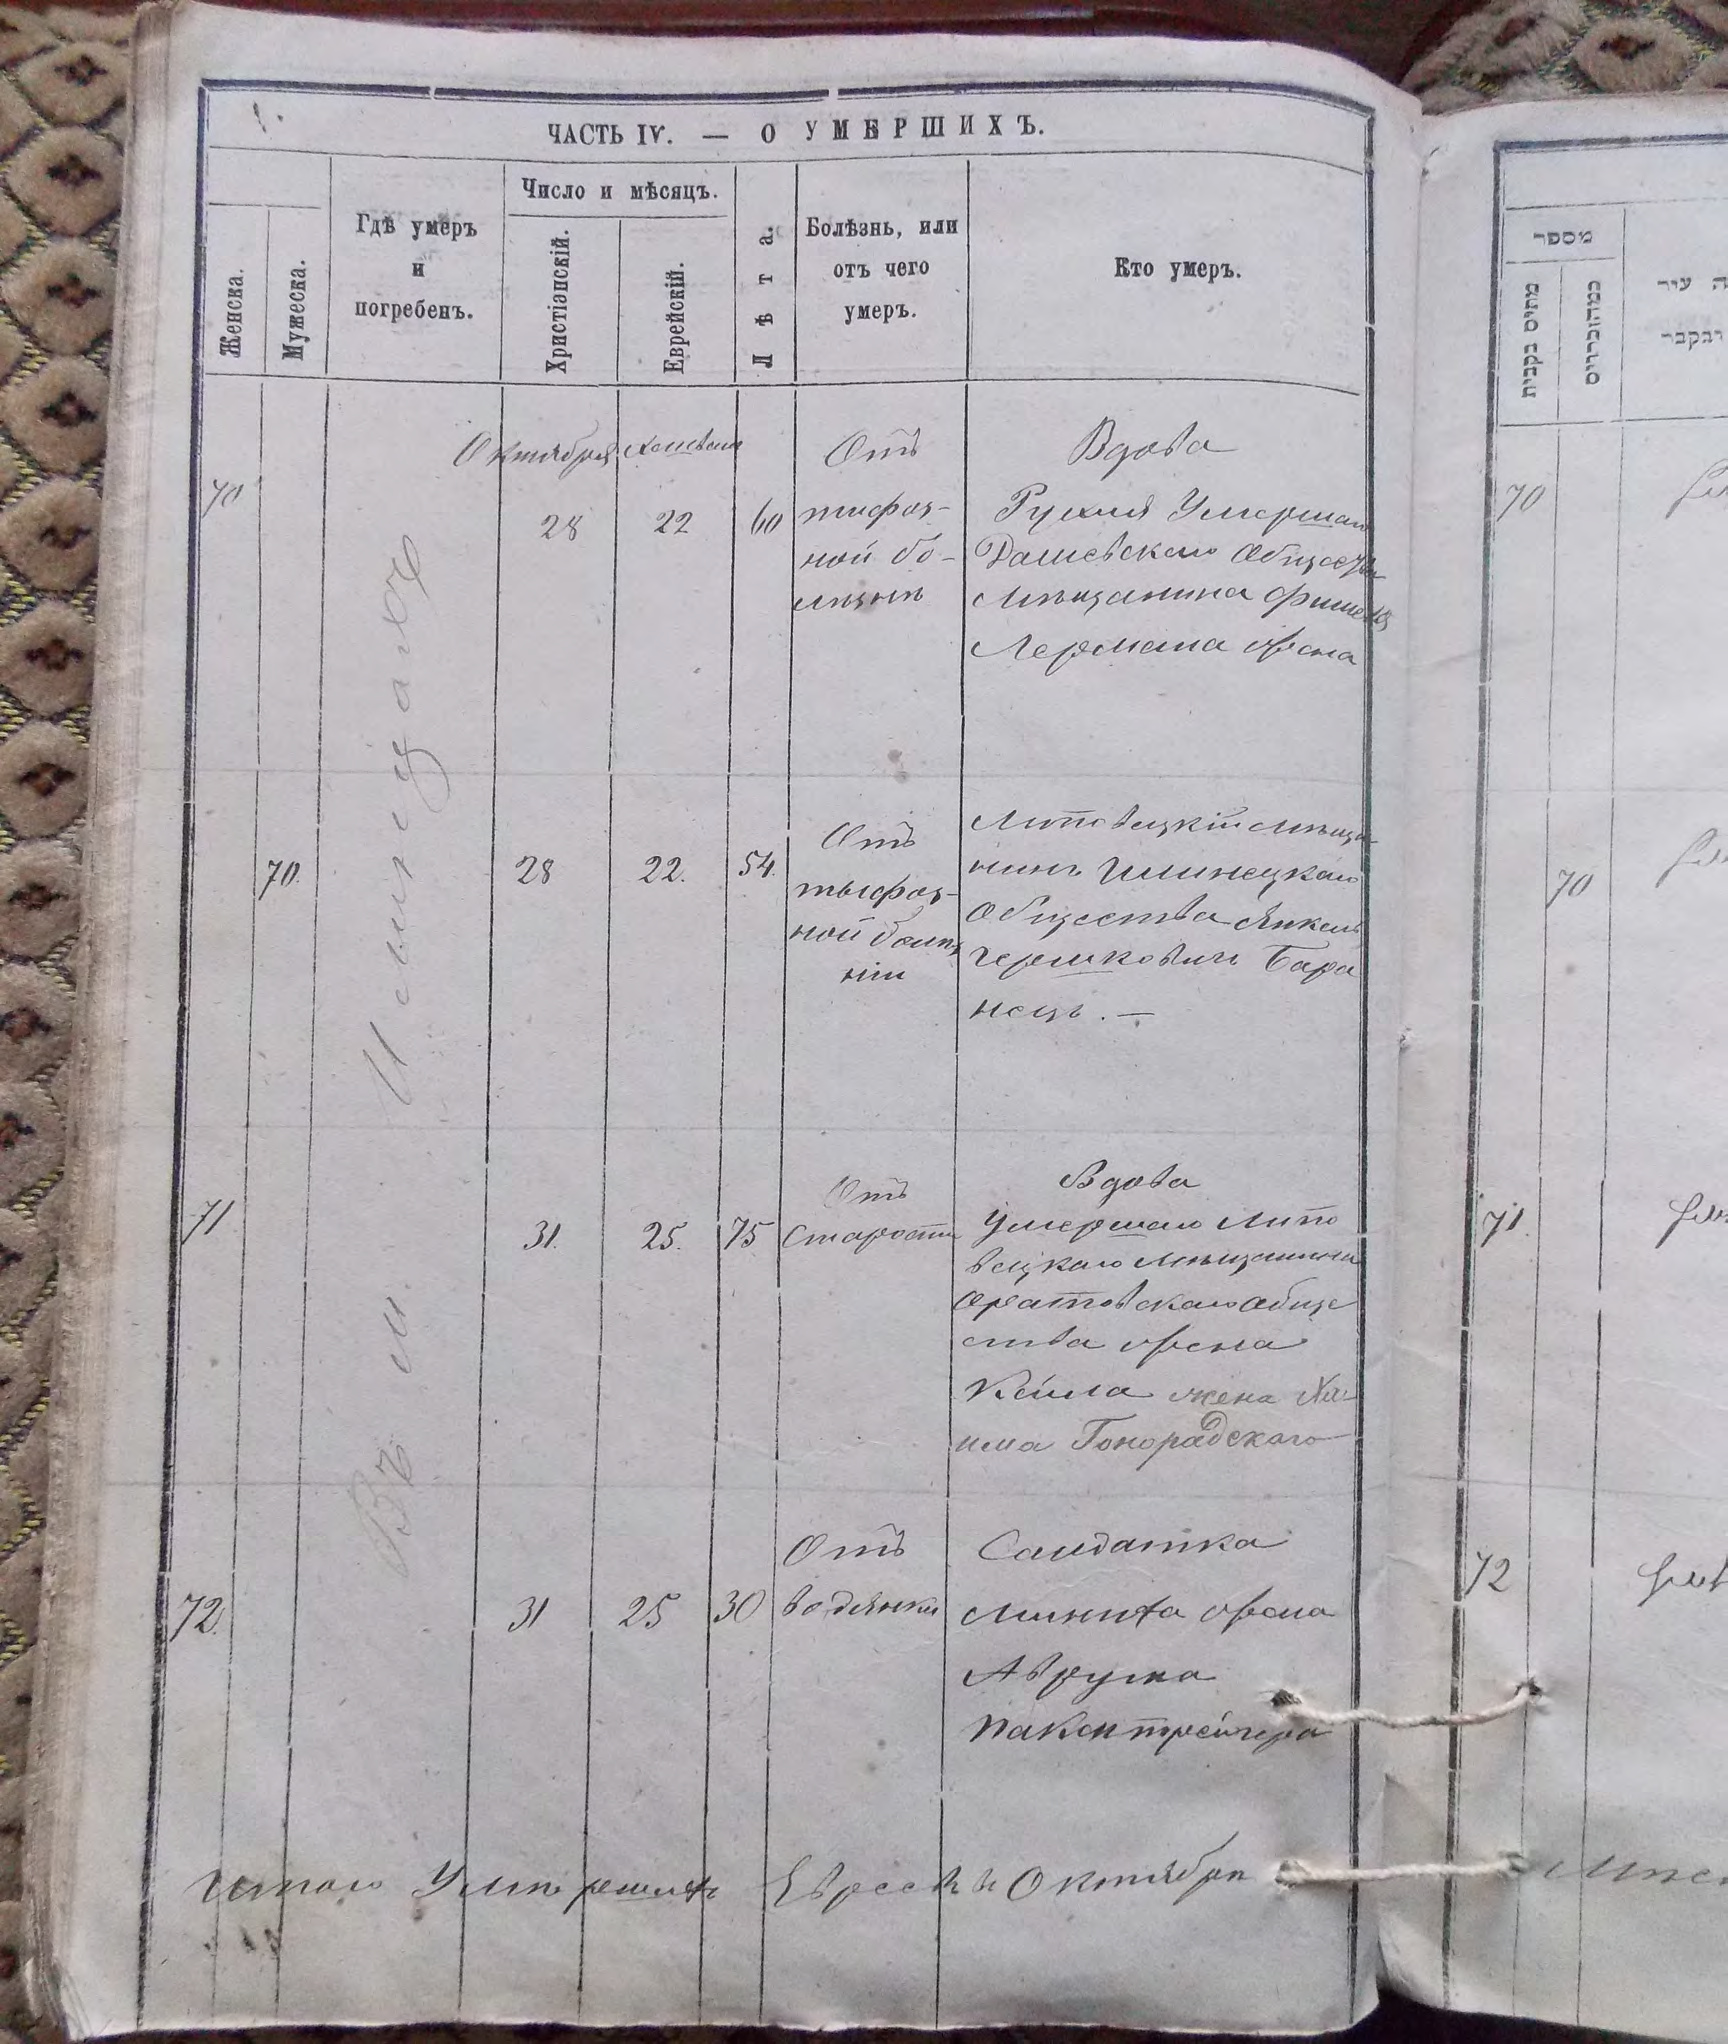 ЧАСТЬ IV. — О УМЕРШИХЪ.
Женска.
Мужеска.
Гдѣ умеръ
и
погребенъ.
Число и мѣсяцъ.
Христіанскій.
Еврейскій.
Лѣта.
Болѣзнь, или
отъ чего
умеръ.
Кто умеръ.
Въ м. Илинцахъ
Октября
70
28
22
60
Отъ
тифоз-
ной бо-
лѣзнѣ
Вдова
Рухля Умершаго
Дашевскаго Общества
мѣщанина Фишеля
Лермана жена
70
28
22.
54.
Отъ
тыфоз-
ной болѣз
ніи
Липовецкій мѣща
нинъ Илинецкаго
Общества Янкель
Гершковичъ Бара
нецъ. —
71
31.
25.
75
Отъ
Старости
Вдова
Умершаго Липо
вецкаго мѣщанина
Оратовскаго обще
ства жена
Кейла жена Ха-
има Гонорадского
72.
31
25
30
Отъ
водянки
Салдатка
жена
Аврума
Итого Умершихъ Евреевъ въ Октябрѣ
מספר
מתים בקבית
כמהזכרים
ה עיר
ובקבר
70
70
71.
72